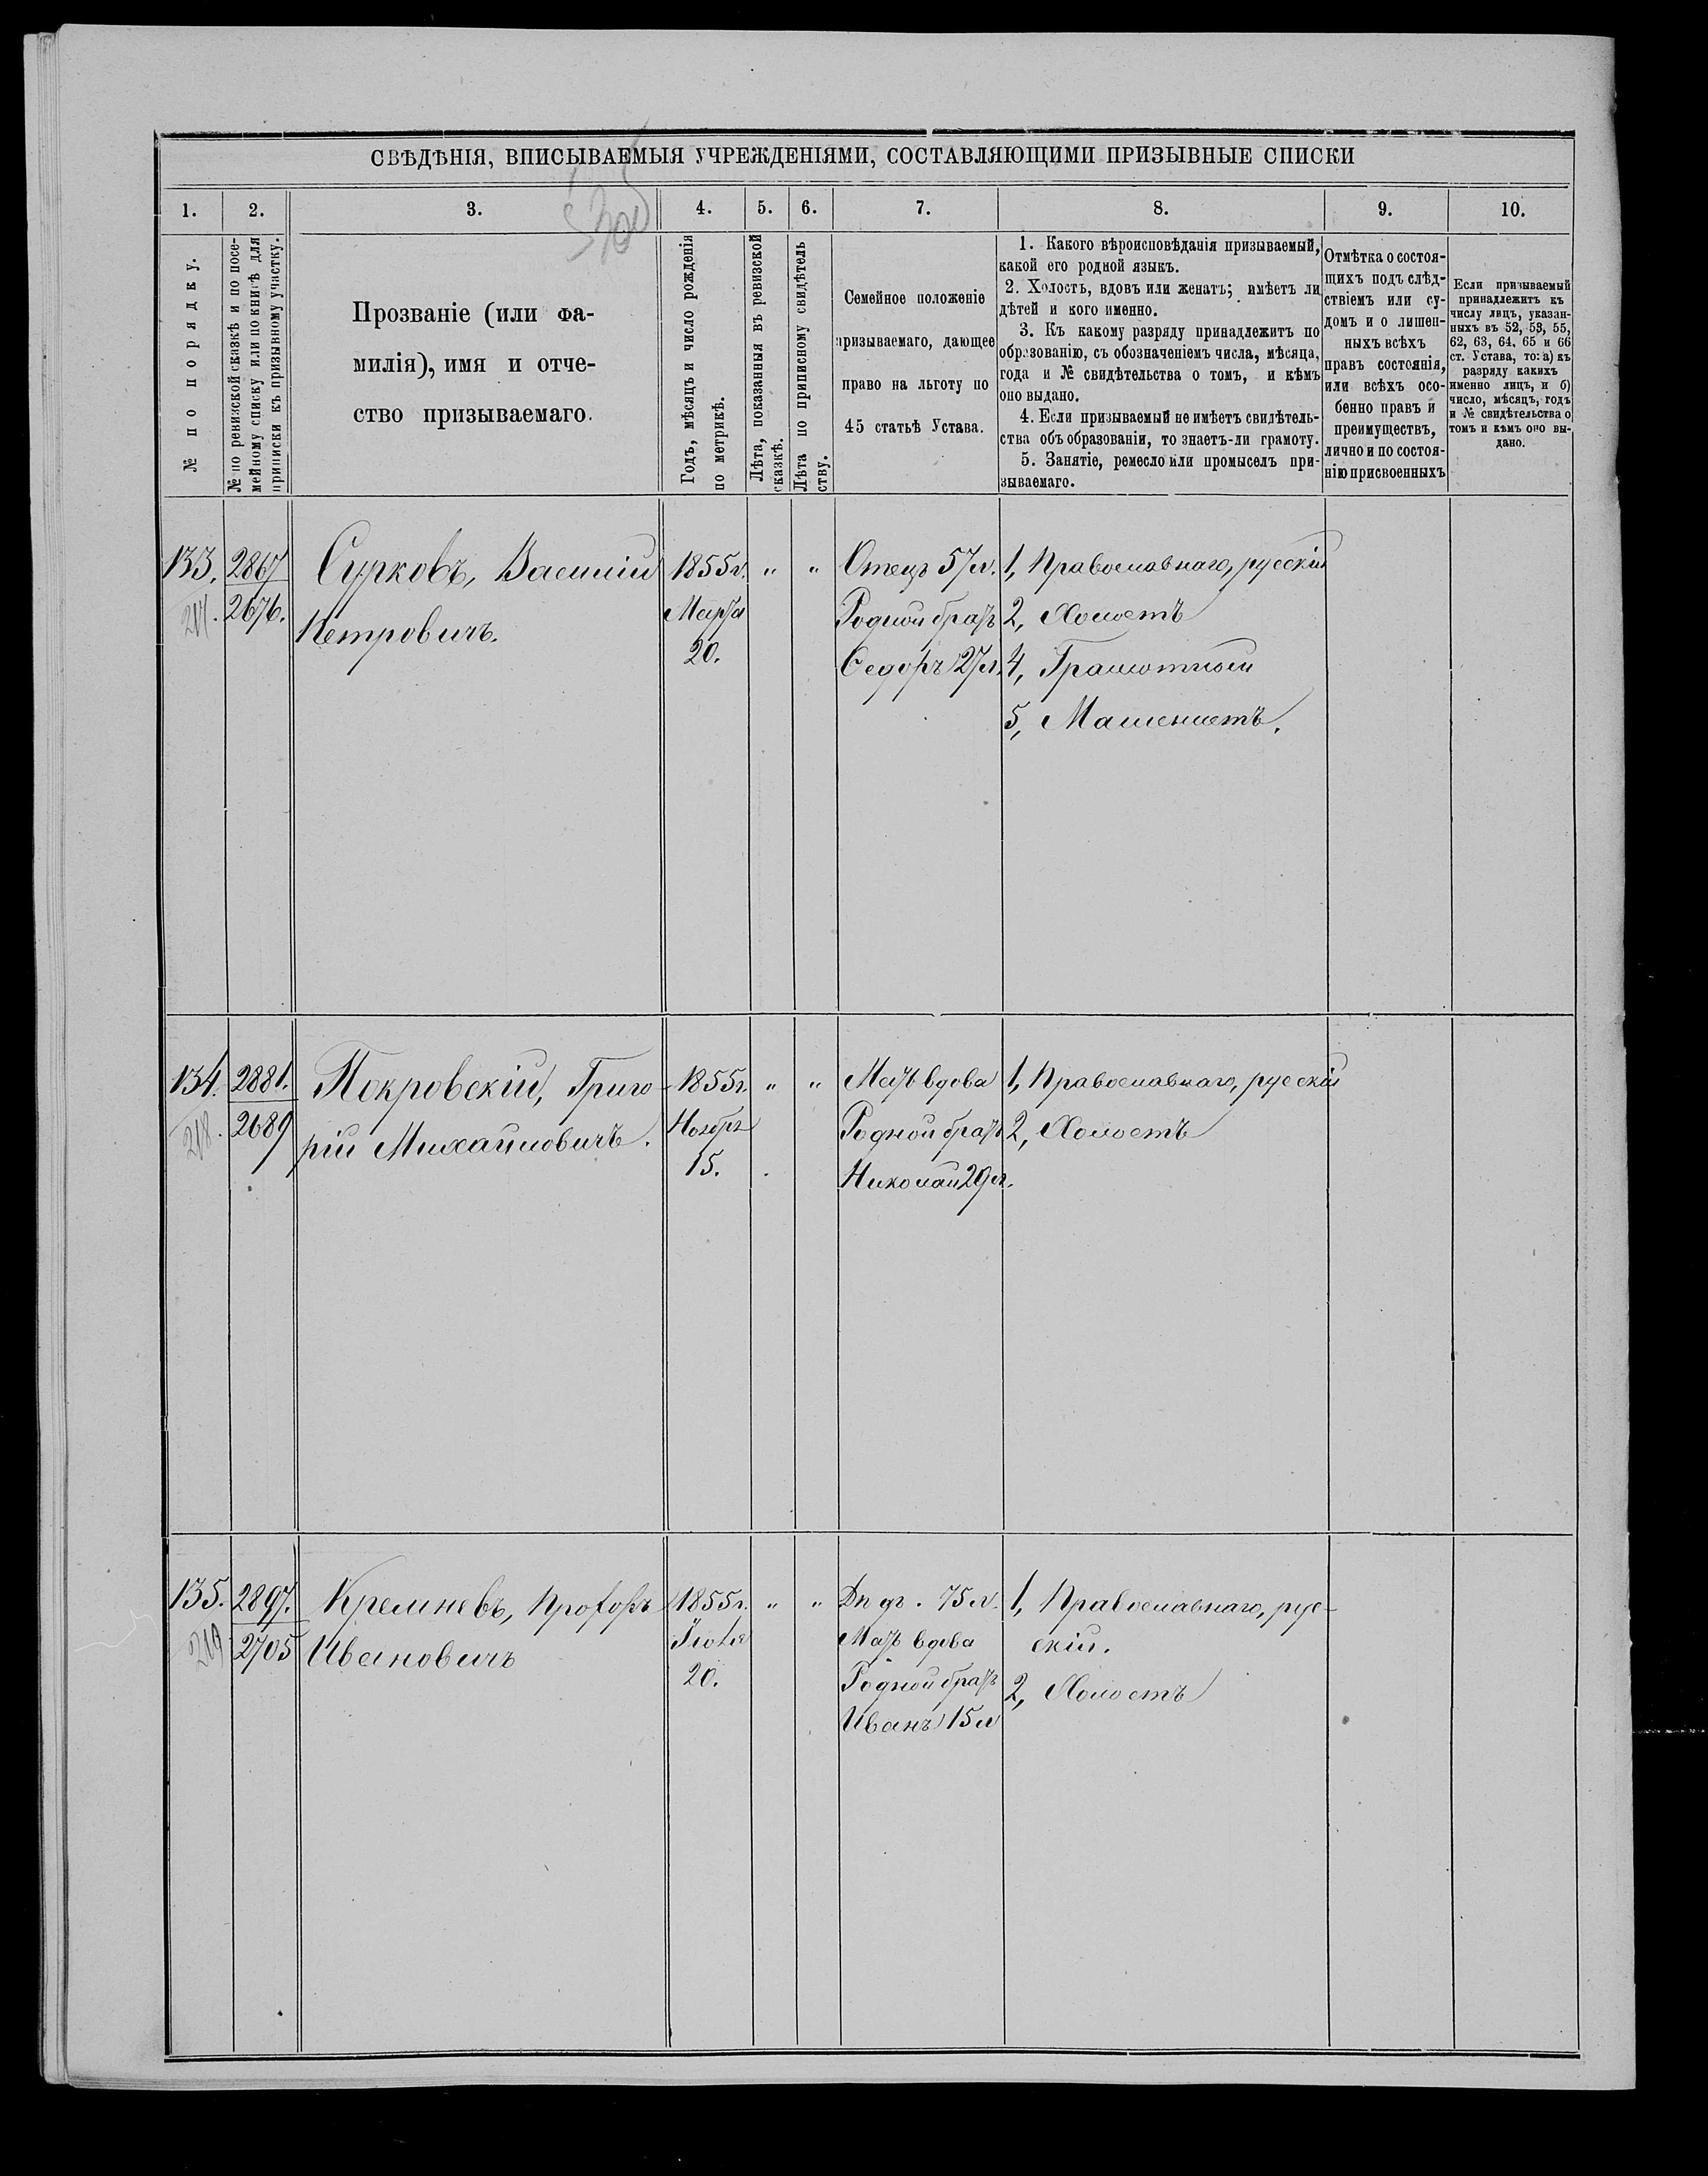 СВѢДѢНІЯ, ВПИСЫВАЕМЫЯ УЧРЕЖДЕНІЯМИ, СОСТАВЛЯЮЩИМИ ПРИЗЫВНЫЕ СПИСКИ
1. 2. 3. 4. 5. 6. 7. 8. 9. 10.
№ по порядку.
№ по ревизской сказкѣ и по посе-
мейному списку или по книгѣ для
приписки къ призывному участку.
Прозваніе (или фа-
милія), имя и отче-
ство призываемаго.
Годъ, мѣсяцъ и число рожденія
по метрикѣ.
Лѣта, показанныя въ ревизской
сказкѣ.
Лѣта по приписному свидѣтель
ству.
Семейное положеніе
призываемаго, дающее
право на льготу по
45 статьѣ Устава.
1. Какого вѣроисповѣданія призываемый,
какой его родной языкъ.
2. Холостъ, вдовъ или женатъ; имѣетъ ли
дѣтей и кого именно.
3. Къ какому разряду принадлежитъ по
образованію, съ обозначеніемъ числа, мѣсяца,
года и № свидѣтельства о томъ, и кѣмъ
оно выдано.
4. Если призываемый не имѣетъ свидѣтель-
ства объ образованіи, то знаетъ-ли грамоту.
5. Занятіе, ремесло или промыселъ при-
зываемаго.
Отмѣтка о состоя-
щихъ подъ слѣд-
ствіемъ или су-
домъ и о лишен-
ныхъ всѣхъ
правъ состоянія,
или всѣхъ осо-
бенно правъ и
преимуществъ,
лично и по состоя-
нію присвоенныхъ
Если призываемый
принадлежитъ къ
числу лицъ, указан-
ныхъ въ 52, 53, 55,
62, 63, 64, 65 и 66
ст. Устава, то: а) къ
разряду какихъ
именно лицъ, и б)
число, мѣсяцъ, годъ
и № свидѣтельства о
томъ и кѣмъ оно вы-
дано.
133.
217.
2867
2676.
Сурковъ, Василій
Петровичъ.
1855 г.
Марта
20.
" "
Отецъ 57 л.
Родной братъ
Ѳедоръ 27 л.
1, Православнаго, русскій
2, Холостъ
4, Грамотный
5, Машенистъ.
134.
218.
2881.
2689
Покровскій, Григо-
рій Михайловичъ.
1855 г.
Ноября
15.
" "
Мать вдова
Родной братъ
Николай 29 л.
1, Православнаго, русскій
2, Холостъ
135.
219
2897.
2705
Кремневъ, Прохоръ
Ивановичъ
1855 г.
Іюля
20.
" "
75 л.
Мать вдова
Родной братъ
Иванъ 15 л
1, Православнаго, рус-
скій.
2, Холостъ